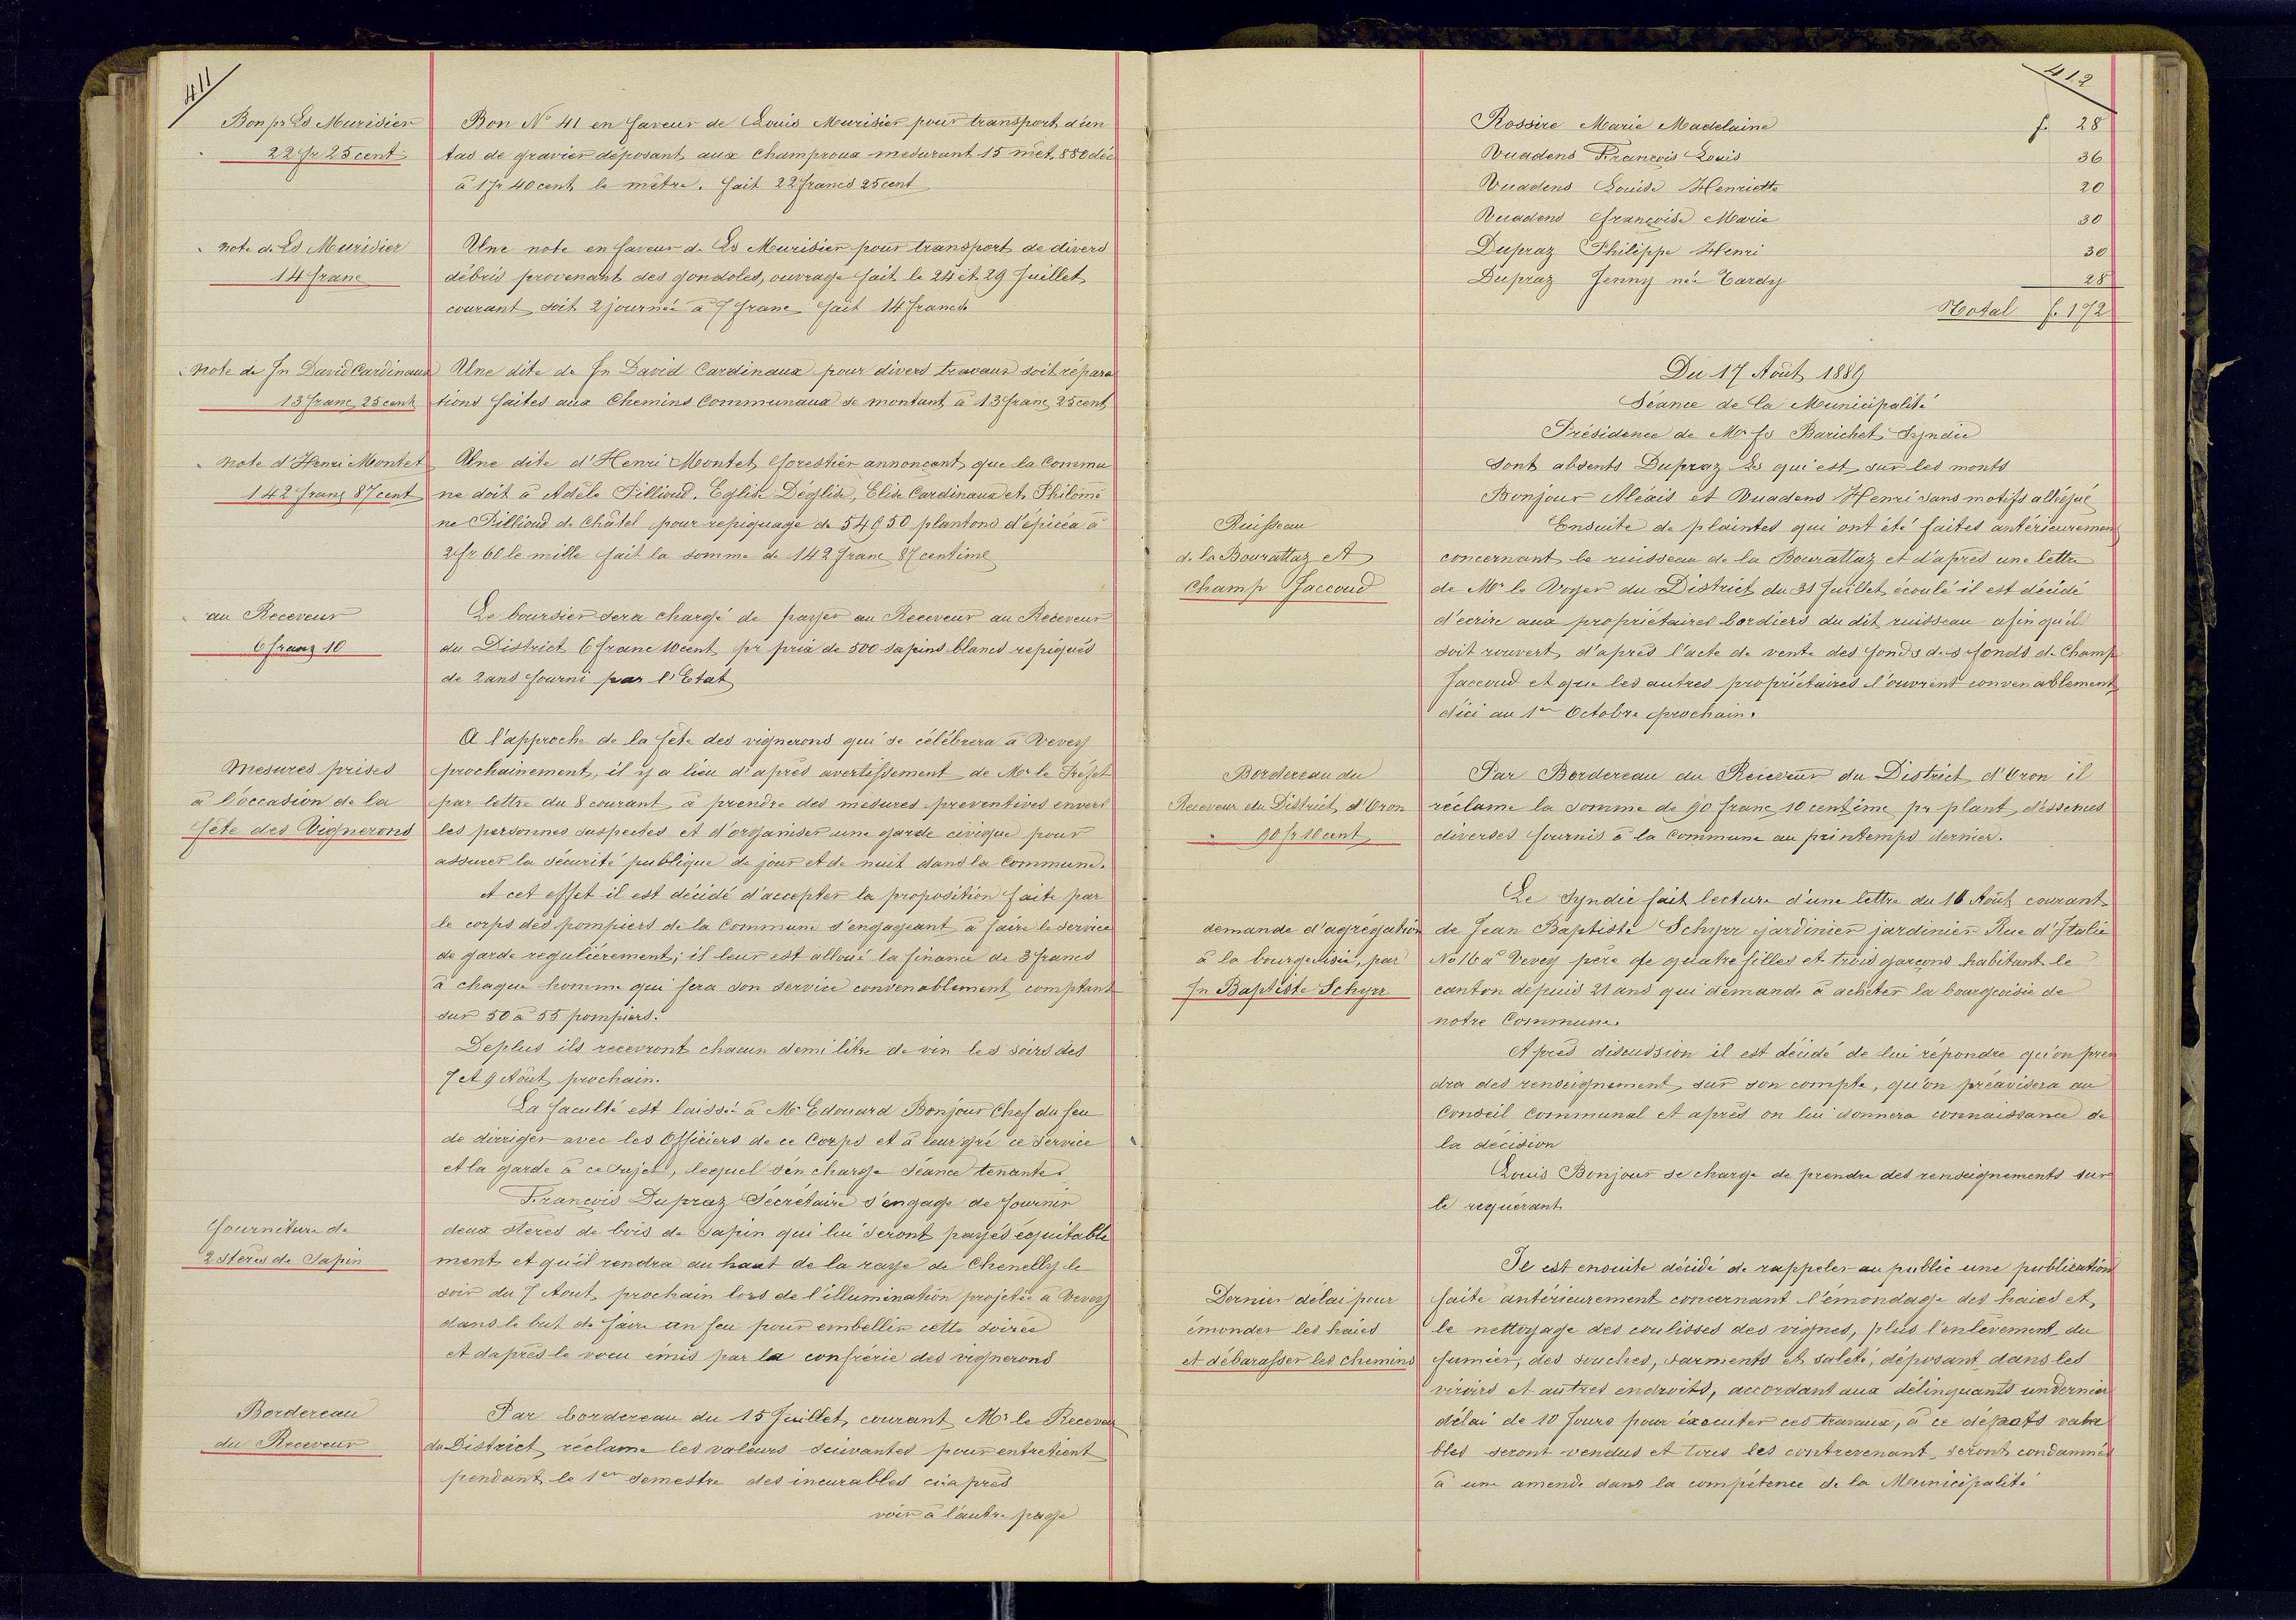 411
Bon pr Ls Murisier
22 fr 25 cent
Bon No 41 en faveur de Louis Murisier pour transport d'un
tas de gravier déposant aux Champroux mesurant 15 mèt 880 déc
à 1 fr 40 cent le mètre. fait 22 francs 25 cent
note de Ls Murisier
14 franc
Une note en faveur de Ls Murisier pour transport de divers
débris provenant des gondoles, ouvrage fait le 24 et 29 Juillet
courant soit 2 journée à 7 franc fait 14 francs
note de Jn David Cardinaux
13 franc 25 cent
Une dite de Jn David Cardinaux pour divers travaux soit répara
tions faites aux Chemins Communaux se montant à 13 franc 25 cent
note d'Henri Montet
142 franc 87 cent
Une dite d'Henri Montet forestier annonçant que la Commu
ne doit à Adèle Pillioud. Eglise Déglise, Elise Cardinaux et Philomè
ne Pillioud de Châtel pour repiquage de 54950 plantons d'épicéa à
2 fr 60 le mille fait la somme de 142 franc 87 centime
au Receveur
6 franz 10
Le boursier sera chargé de payer au Receveur au Receveur
du District 6 franc 10 cent pr prix de 500 sapins blancs repiqués
de 2 ans fourni par l'Etat
Mesures prises
à l'occasion de la
fête des Vignerons
A l'approche de la fête des vignerons qui se célébrera à Vevey
prochainement, il y a lieu d'après avertissement de Mr le Préfet
par lettre du 8 courant à prendre des mesures preventives envers
les personnes suspectes et d'organiser une garde civique pour
assurer la sécurité publique de jour et de nuit dans la Commune.
A cet effet il est décidé d'accepter la proposition faite par
le corps des pompiers de la Commune s'engageant à faire le service
de garde regulièrement; il leur est alloué la finance de 3 francs
à chaque homme qui fera son service convenablement comptant
sur 50 à 55 pompiers.
Deplus ils recevront chacun demi litre de vin les soirs des
7 et 9 Août prochain.
La faculté est laissée à Mr Edouard Bonjour Chef du feu
de dirriger avec les Officiers de ce Corps et à leur gré ce service
et la garde à ce sujet, lequel s'en charge séance tenante.
Fourniture de
2 stères de Sapin
François Dupraz Sécrétaire s'engage de fournir
deux stères de bois de sapin qui lui seront payés équitable
ment et qu'il rendra au haut de la raye de Chenelly le
soir du 7 Aout prochain lors de l'illumination projetée à Vevey
dans le but de faire un feu pour embellir cette soirée
et d'après le voeu émis par la confrérie des vignerons
Bordereau
du Receveur
Par bordereau du 15 Juillet courant Mr le Receveur
du District réclame les valeurs suivantes pour entretient
pendant le 1er semestre des incurables ci après
voir à l'autre page
412
Rossire Marie Madelaine f. 28
Vuadens François Louis 36
Vuadens Louise Henriette 20
Vuadens françoise Marie 30
Dupraz Philippe Henri 30
Dupraz Jenny née Tardy 28
Total f. 172
Du 17 Août 1889
Séance de la Municipalité
Présidence de Mr fs Barichet Syndic
Sont absents Dupraz Ls qui est sur les monts
Bonjour Alexis et Vuadens Henri sans motifs allégué
Ruisseau
de la Bourattaz et
Champ Jaccoud
Ensuite de plaintes qui ont été faites antérieurement
concernant le ruisseau de la Bourattaz et d'après une lettre
de Mr le Voyer du District du 31 Juillet écoulé il est décidé
d'écrire aux propriétaires bordiers du dit ruisseau afin qu'il
soit rouvert d'après l'acte de vente des fonds des fonds de Champ
Jaccoud et que les autres propriétaires l'ouvrent convenablement
d'ici au 1er Octobre prochain.
Bordereau du
Receveur du District d'Oron
90 fr 10 cent
Par Bordereau du Receveur du District d'Oron il
réclame la somme de 90 franc 10 centime pr plant d'éssences
diverses fournis à la Commune au printemps dernier.
demande d'agrégation
à la bourgeoisie, par
Jn Baptiste Schyrr
Le Syndic fait lecture d'une lettre du 16 Août courant
de Jean Baptiste Schyrr jardinier jardinier Rue d'Italie
No 16 à Vevey père de quatre filles et trois garçons habitant le
canton depuis 21 ans qui demande à acheter la bourgeoisie de
notre Commune.
Après discussion il est décidé de lui répondre qu'on pren
dra des renseignement sur son compte, qu'on préavisera au
Conseil Communal et après on lui donnera connaissance de
la décision
Louis Bonjour se charge de prendre des renseignements sur
le requérant
Dernier délai pour
émonder les haies
et débarasser les chemins
Il est ensuite décidé de rappeler au public une publication
faite antérieurement concernant l'émondage des haies et
le nettoyage des coulisses des vignes, plus l'enlèvement du
fumier, des souches, sarments et saleté, déposant dans les
viroirs et autres endroits, accordant aux délinquants un dernier
délai de 10 Jours pour éxecuter ces travaux, à ce dépots vala
bles seront vendus et tous les contrevenant seront condamnés
à une amende dans la compétence de la Municipalité